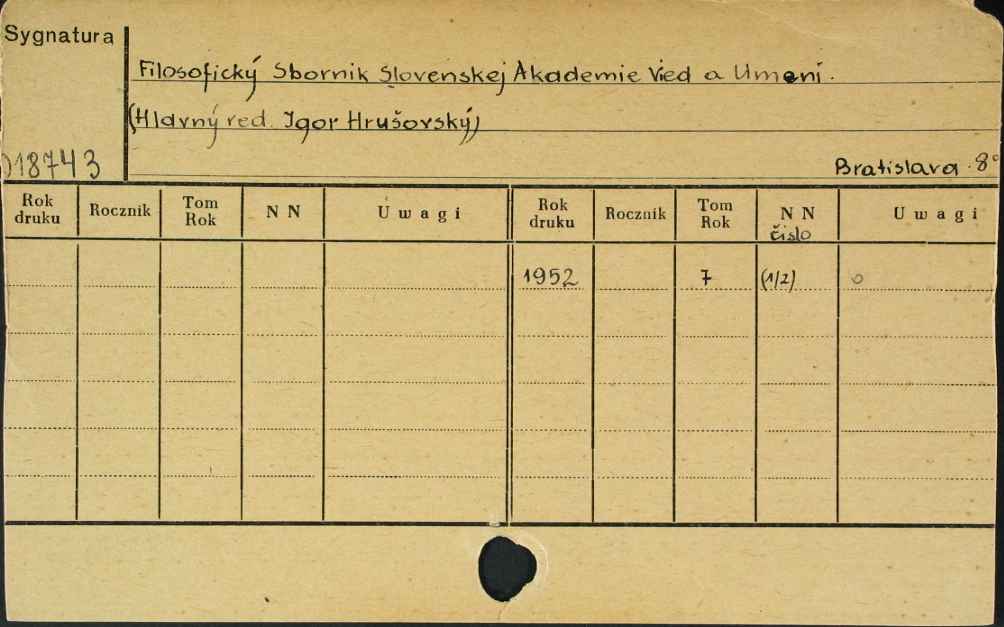 Sygnatura
Filosofický Sborník Slovenskej Akademie Vied a Umení.
(Hlavný red. Igor Hrušovský)
18743
Bratislava. 8°
Rok druku Rocznik Tom Rok N N Uwagi Rok druku Rocznik Tom Rok N N čislo Uwagi
1952 7 (1/2) o